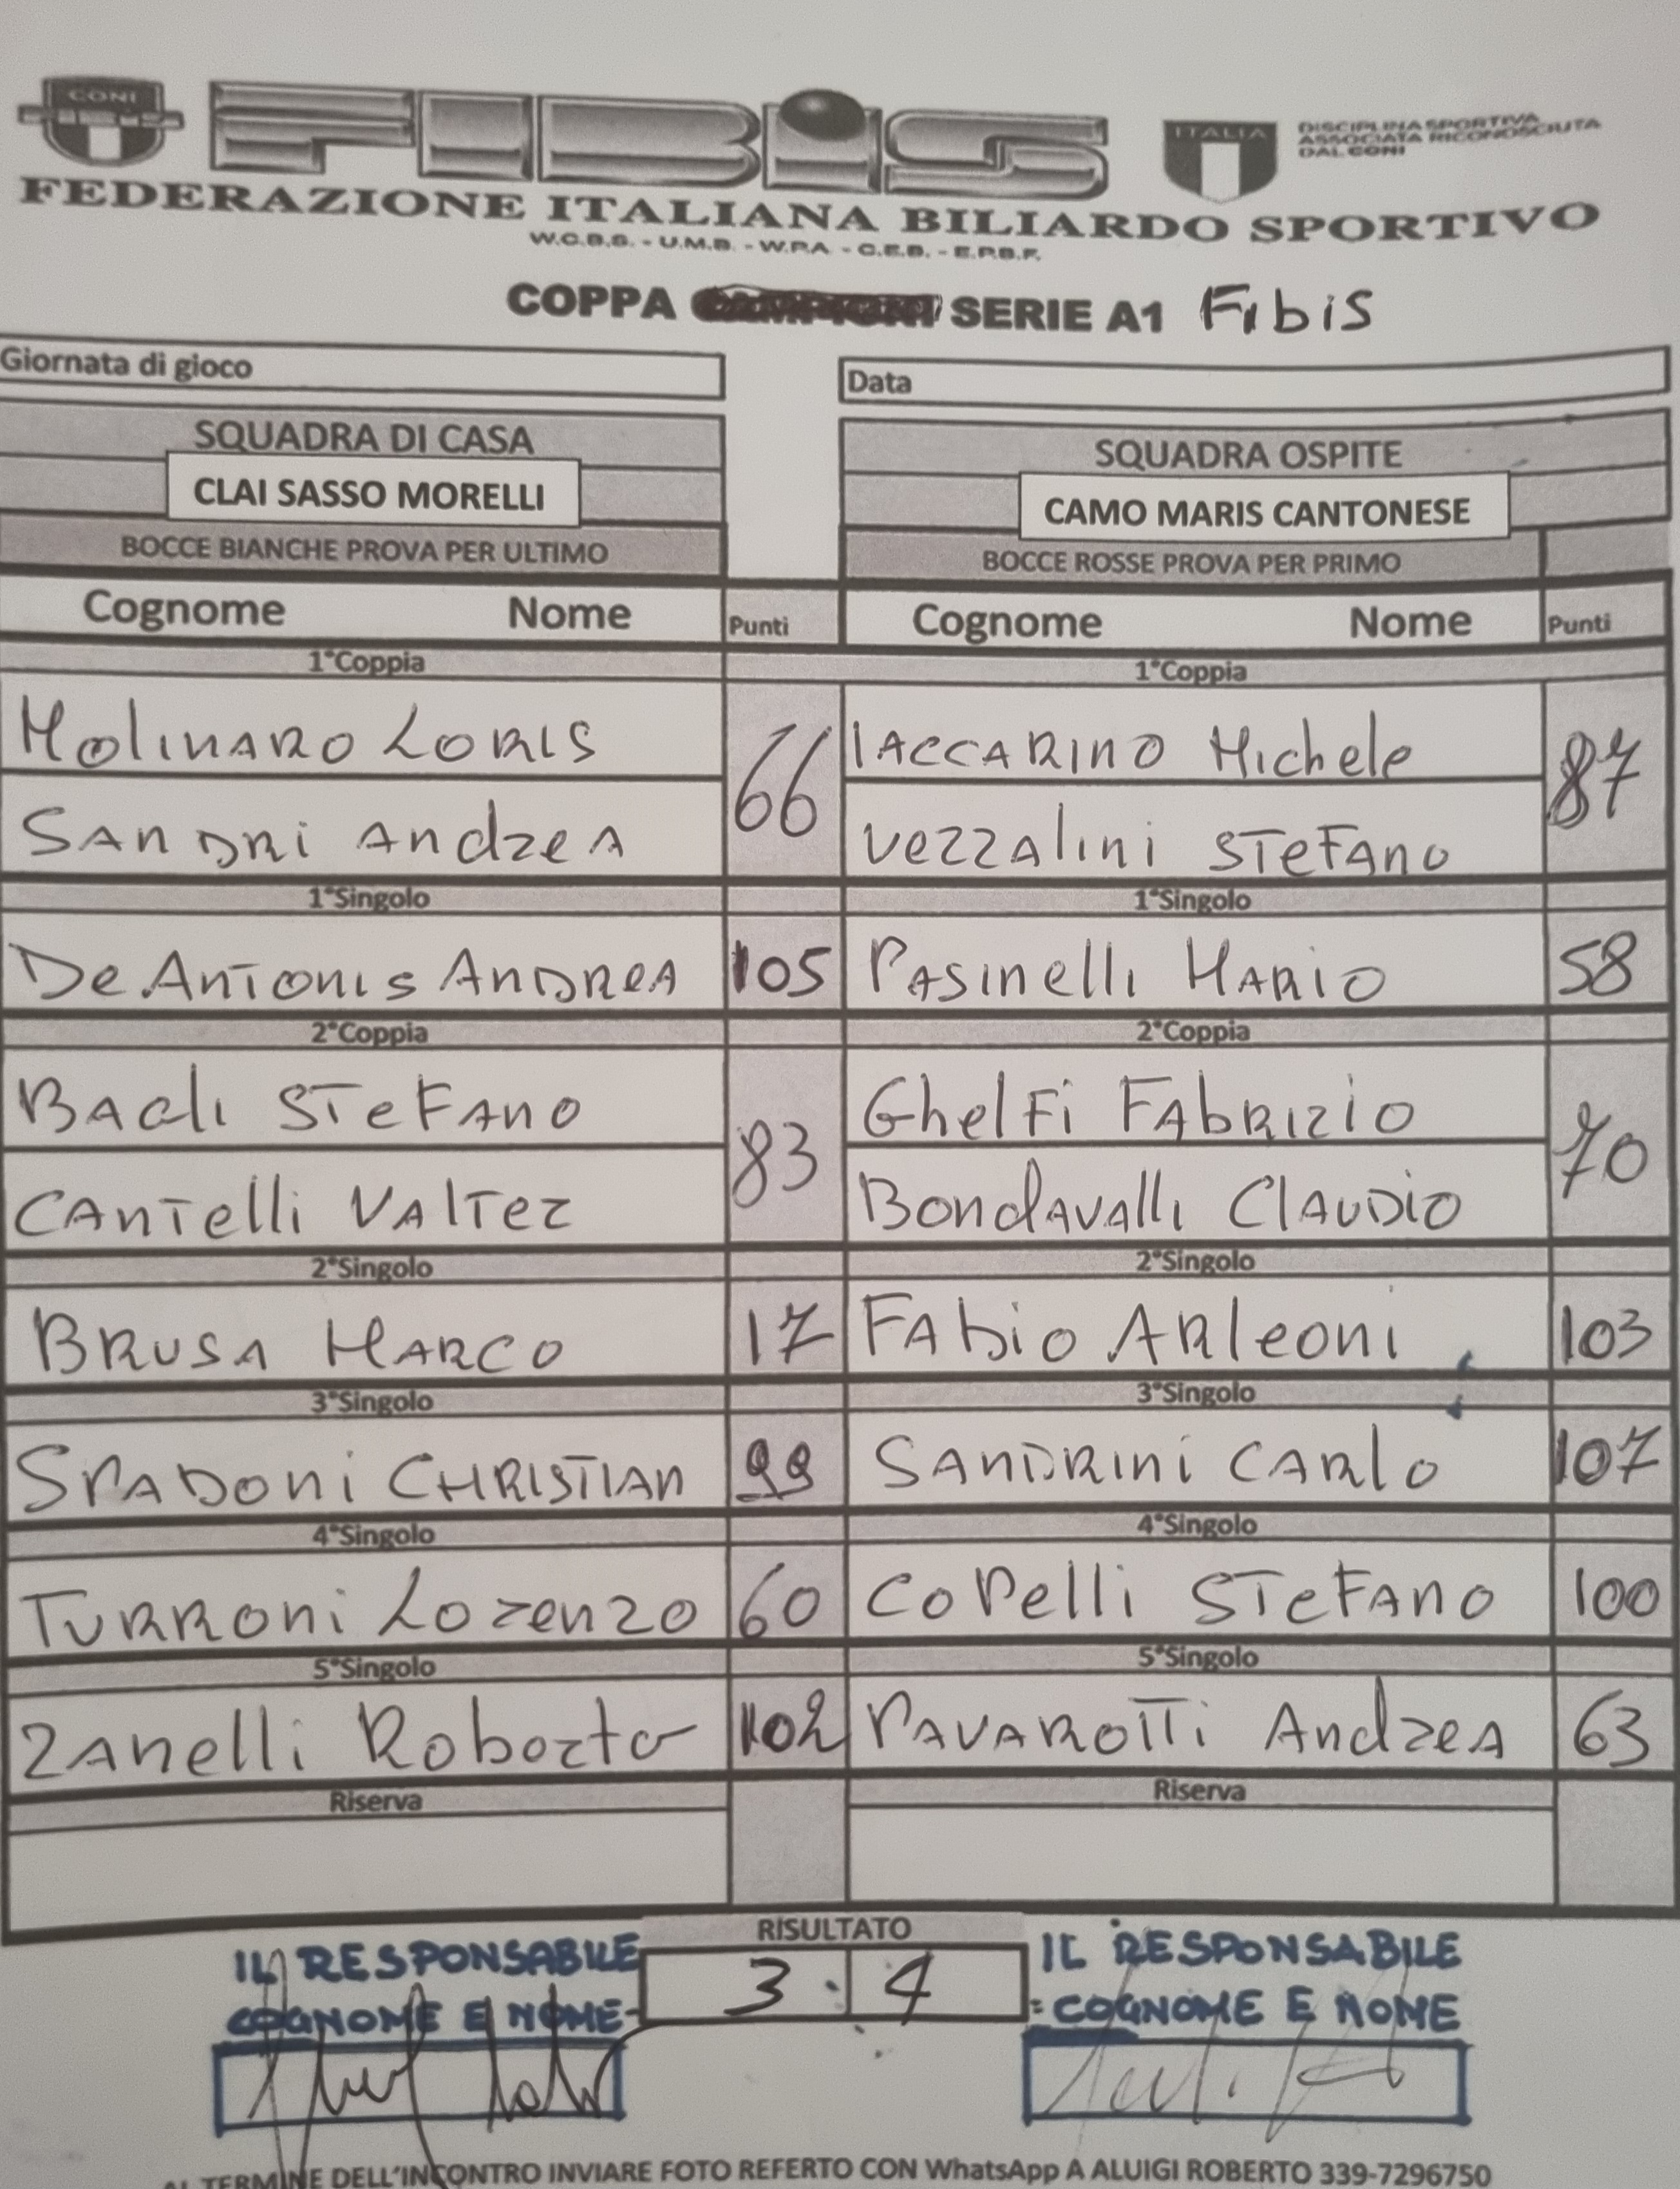 CONI
FIBiS
ITALIA
DISCIPLINA SPORTIVA
ASSOCIATA RICONOSCIUTA
DAL CONI
FEDERAZIONE ITALIANA BILIARDO SPORTIVO
W.C.B.S. - U.M.B. - W.P.A. - C.E.B. - E.P.B.F.
COPPA SERIE A1 Fibis
Giornata di gioco Data
SQUADRA DI CASA SQUADRA OSPITE
CLAI SASSO MORELLI CAMO MARIS CANTONESE
BOCCE BIANCHE PROVA PER ULTIMO BOCCE ROSSE PROVA PER PRIMO
Cognome Nome Punti Cognome Nome Punti
1°Coppia 1°Coppia
MOLINARO LORIS 66 IACCARINO Michele 87
SANDRI AndreA Vezzalini STeFAno
1°Singolo 1°Singolo
De ANTONIS ANDREA 105 PASinelli MARIO 58
2°Coppia 2°Coppia
BAgli STeFAno 83 GhelFi FAbRizio 70
CAnTelli VAlTer BondAvAlli ClAUDIO
2°Singolo 2°Singolo
BRUSA MARCO 17 FAbio ARleoni 103
3°Singolo 3°Singolo
SPADONi CHRISTIAN 99 SANDRINi CARlo 107
4°Singolo 4°Singolo
TURRONi Lorenzo 60 CoPelli STeFAno 100
5°Singolo 5°Singolo
ZAnelli Roberto 102 PAVAROTTi AndreA 63
Riserva Riserva
RISULTATO
IL RESPONSABILE 3 : 4 IL RESPONSABILE
COGNOME E NOME COGNOME E NOME
AL TERMINE DELL'INCONTRO INVIARE FOTO REFERTO CON WhatsApp A ALUIGI ROBERTO 339-7296750